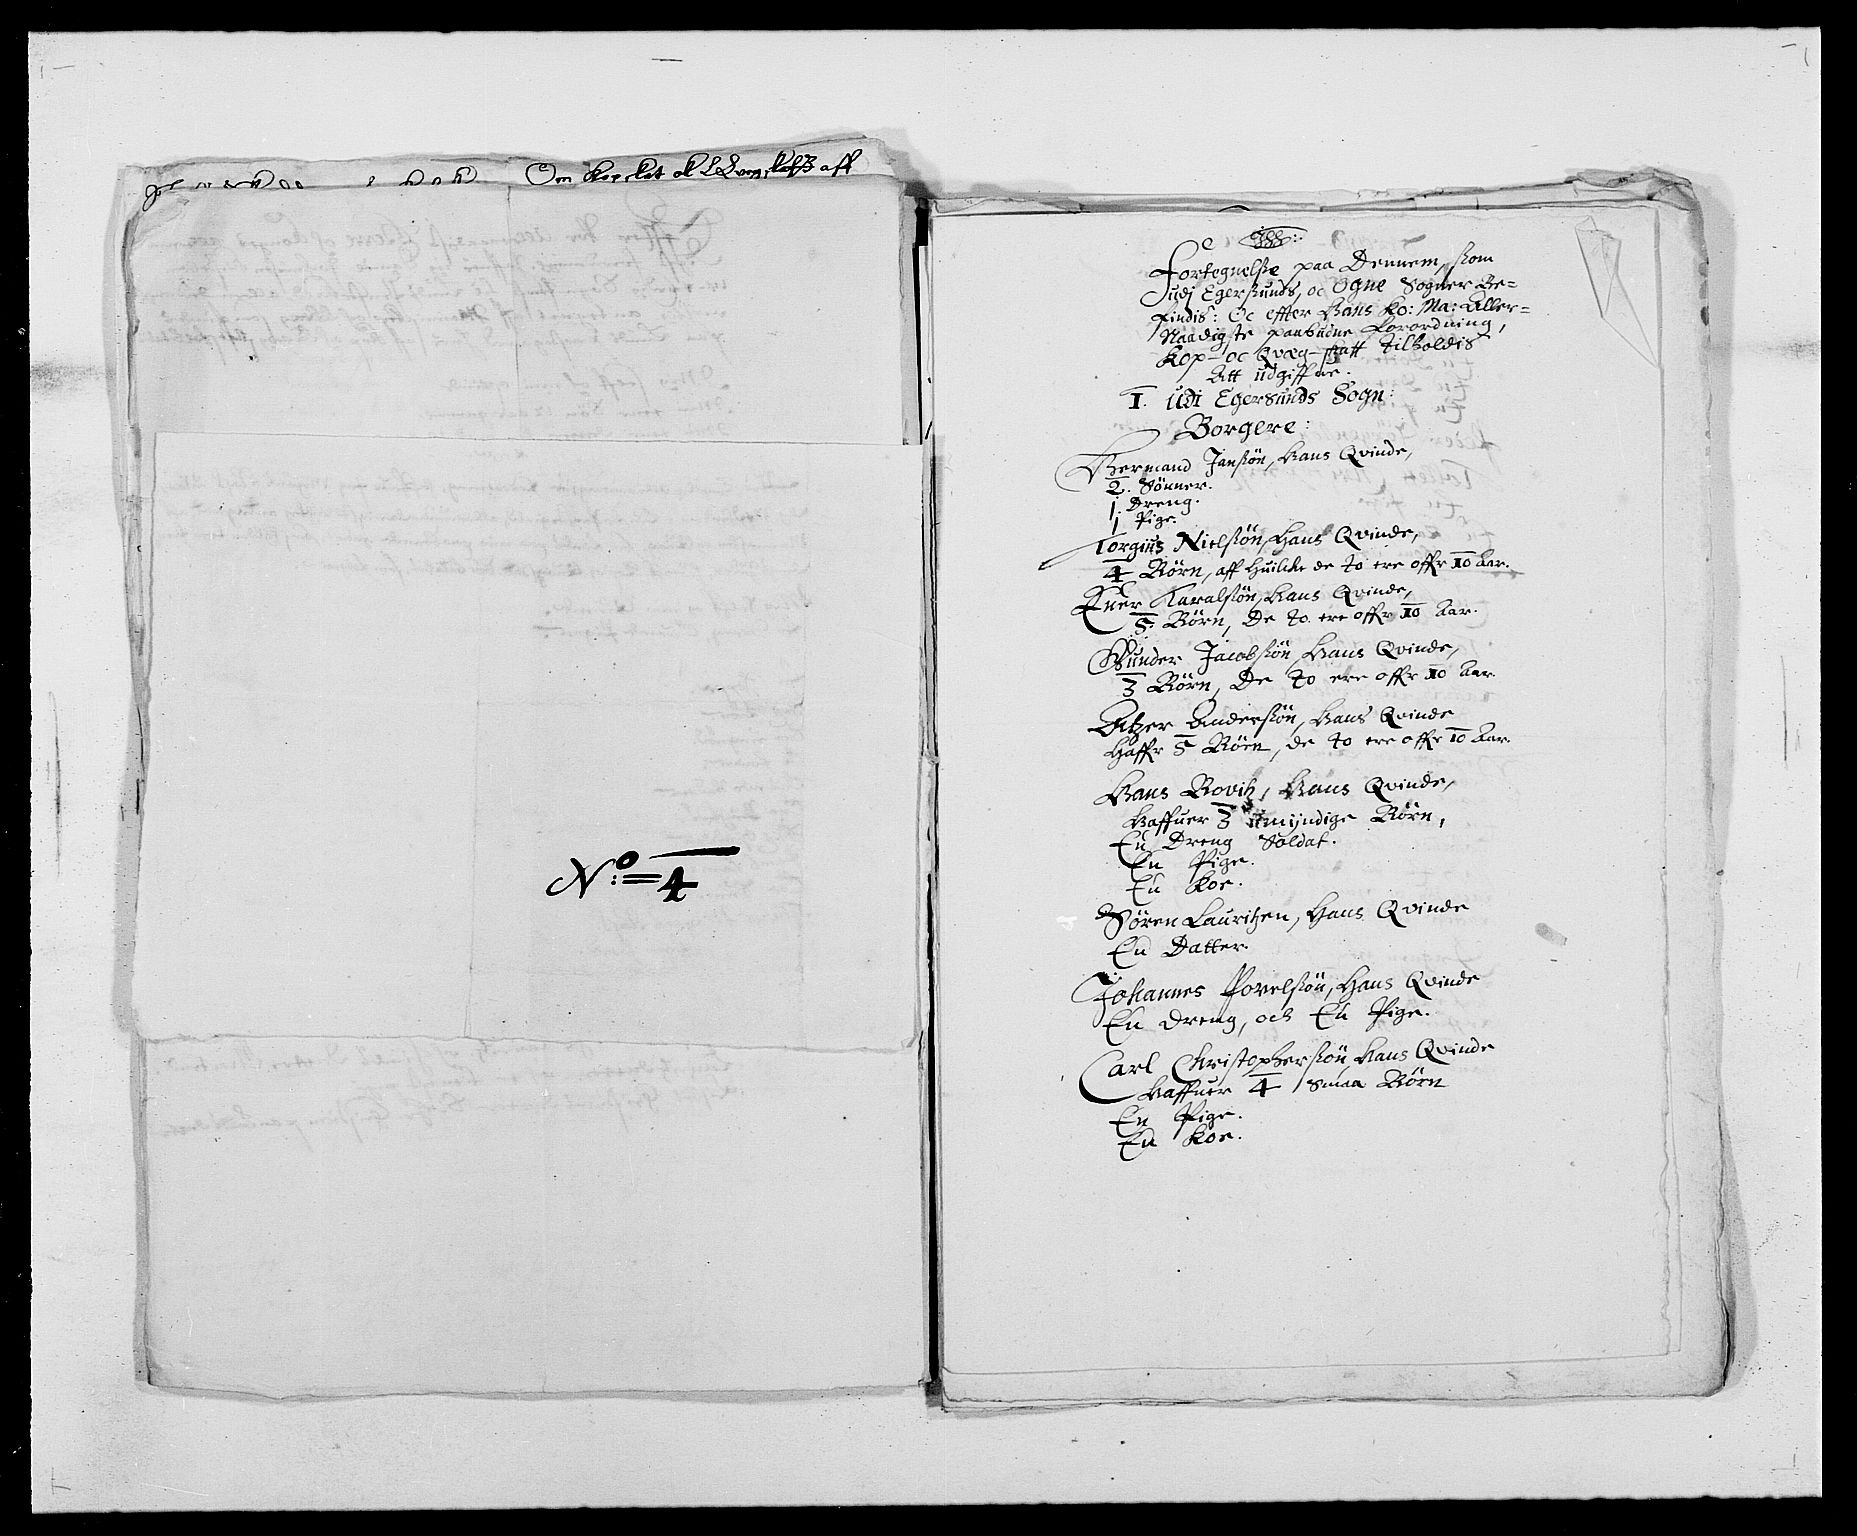 Om kopskat oc qvegskatt aff
No: = 4
Fortegnelsse paa Dennem, som
udj Egersunds, oc Ogne Sogner Be-
findis: Oc effter Hans Ko: Ma: Aller-
Naadigste paabudne Forordning,
Kop- oc Qvæg-skatt tilholdis
Att udgiffue.
I. Udi Egersunds Sogn:
Borgere:
Hermand Janssön, Hans Qvinde,
2. Sønner.
1. Dreng.
1 Pige.
Torgius Nielssön, Hans Qvinde,
4 Börn, aff huilcke de to ere offr 10 Aar.
Iuer Haralssön, Hans Qvinde,
5. Börn, De to ere offr 10 Aar.
Gunder Jacobssön, Hans Qvinde,
3 Börn, De to ere offr 10 Aar.
Atzer Anderssön, Hans Qvinde
Haffr 5 Börn, de to ere offr 10 Aar.
Hans Rovitz, Hans Qvinde,
Haffuer 3 umyndige Börn,
En Dreng Soldat.
En Pige.
En Koe.
Sören Lauritzen, Hans Qvinde
En Datter.
Johannes Povelssön, Hans Qvinde
En dreng, och En Pige.
Carl Christopherssön, Hans Qvinde
Haffuer 4 smaa Börn
En Pige.
En Koe.